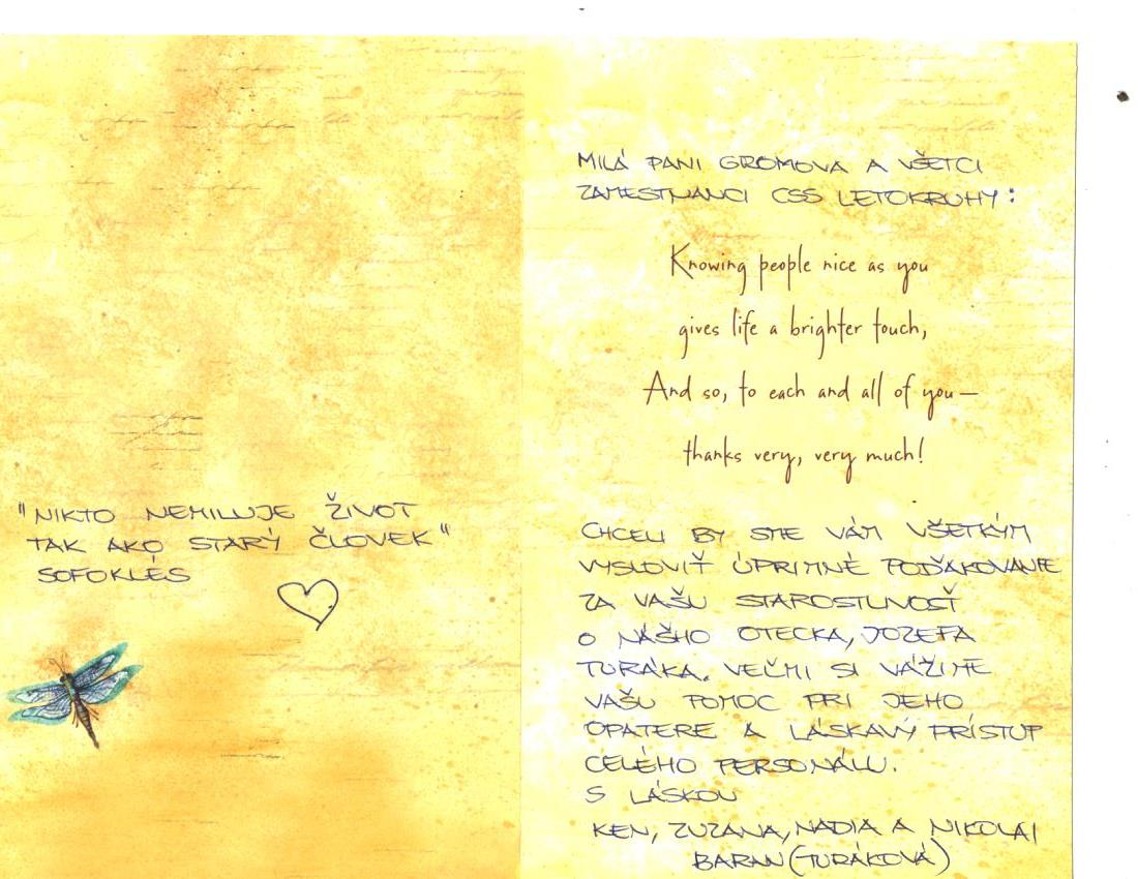 "NIKTO NEMILUJE ŽIVOT
TAK AKO STARÝ ČLOVEK"
SOFOKLES
MILÁ PANI GROMOVA A VŠETCI
ZAMESTNANCI CSS LETOKRUHY:
Knowing people nice as you
gives life a brighter touch,
And so, to each and all of you—
thanks very, very much!
CHCELI BY SME VÁM VŠETKÝM
VYSLOVIŤ ÚPRIMNÉ POĎAKOVANIE
ZA VAŠU STAROSTLIVOSŤ
O NÁŠHO OTECKA, JOZEFA
TURÁKA. VEĽMI SI VÁŽIME
VAŠU POMOC PRI JEHO
OPATERE A LÁSKAVÝ PRÍSTUP
CELÉHO PERSONÁLU.
S LÁSKOU
KEN, ZUZANA, NADIA A NIKOLAI
BARAN (TURÁKOVÁ)